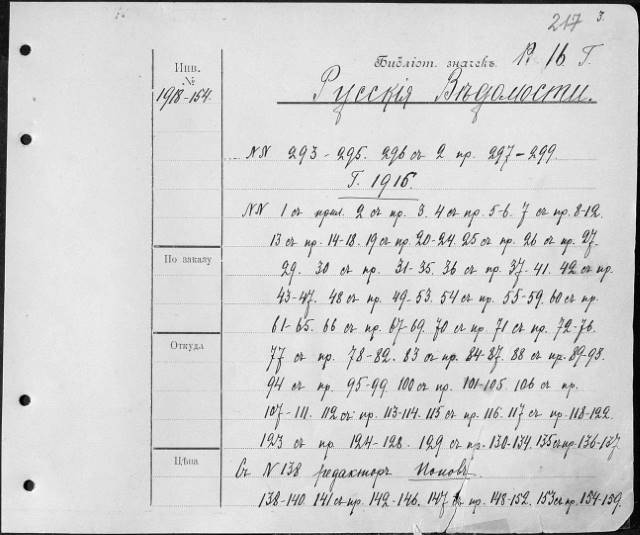 217 3.
Библіот. значекъ Р. 16 Г.
Инв.
№
1918-154.
Русскія Вѣдомости.
NN 293-295. 296 съ 2 пр. 297-299.
Г. 1916.
NN 1 съ прил. 2 съ пр. 3. 4 съ пр. 5-6. 7 съ пр. 8-12.
13 съ пр. 14-18. 19 съ пр. 20-24. 25 съ пр. 26 съ пр. 27.
По заказу
29. 30 съ пр. 31-35. 36 съ пр. 37-41. 42 съ пр.
43-47. 48 съ пр. 49-53. 54 съ пр. 55-59. 60 съ пр.
61-65. 66 съ пр. 67-69. 70 съ пр. 71 съ пр. 72-76.
Откуда
77 съ пр. 78-82. 83 съ пр. 84-87. 88 съ пр. 89-93.
94 съ пр. 95-99. 100 съ пр. 101-105. 106 съ пр.
107-111. 112 съ пр. 113-114. 115 съ пр. 116. 117 съ пр. 118-122.
123 съ пр. 124-128. 129 съ пр. 130-134. 135 съ пр. 136-137.
Цѣна
Съ N 138 редакторъ Поповъ.
138-140. 141 съ пр. 142-146. 147 съ пр. 148-152. 153 съ пр. 154-159.